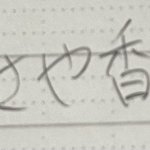 さや香